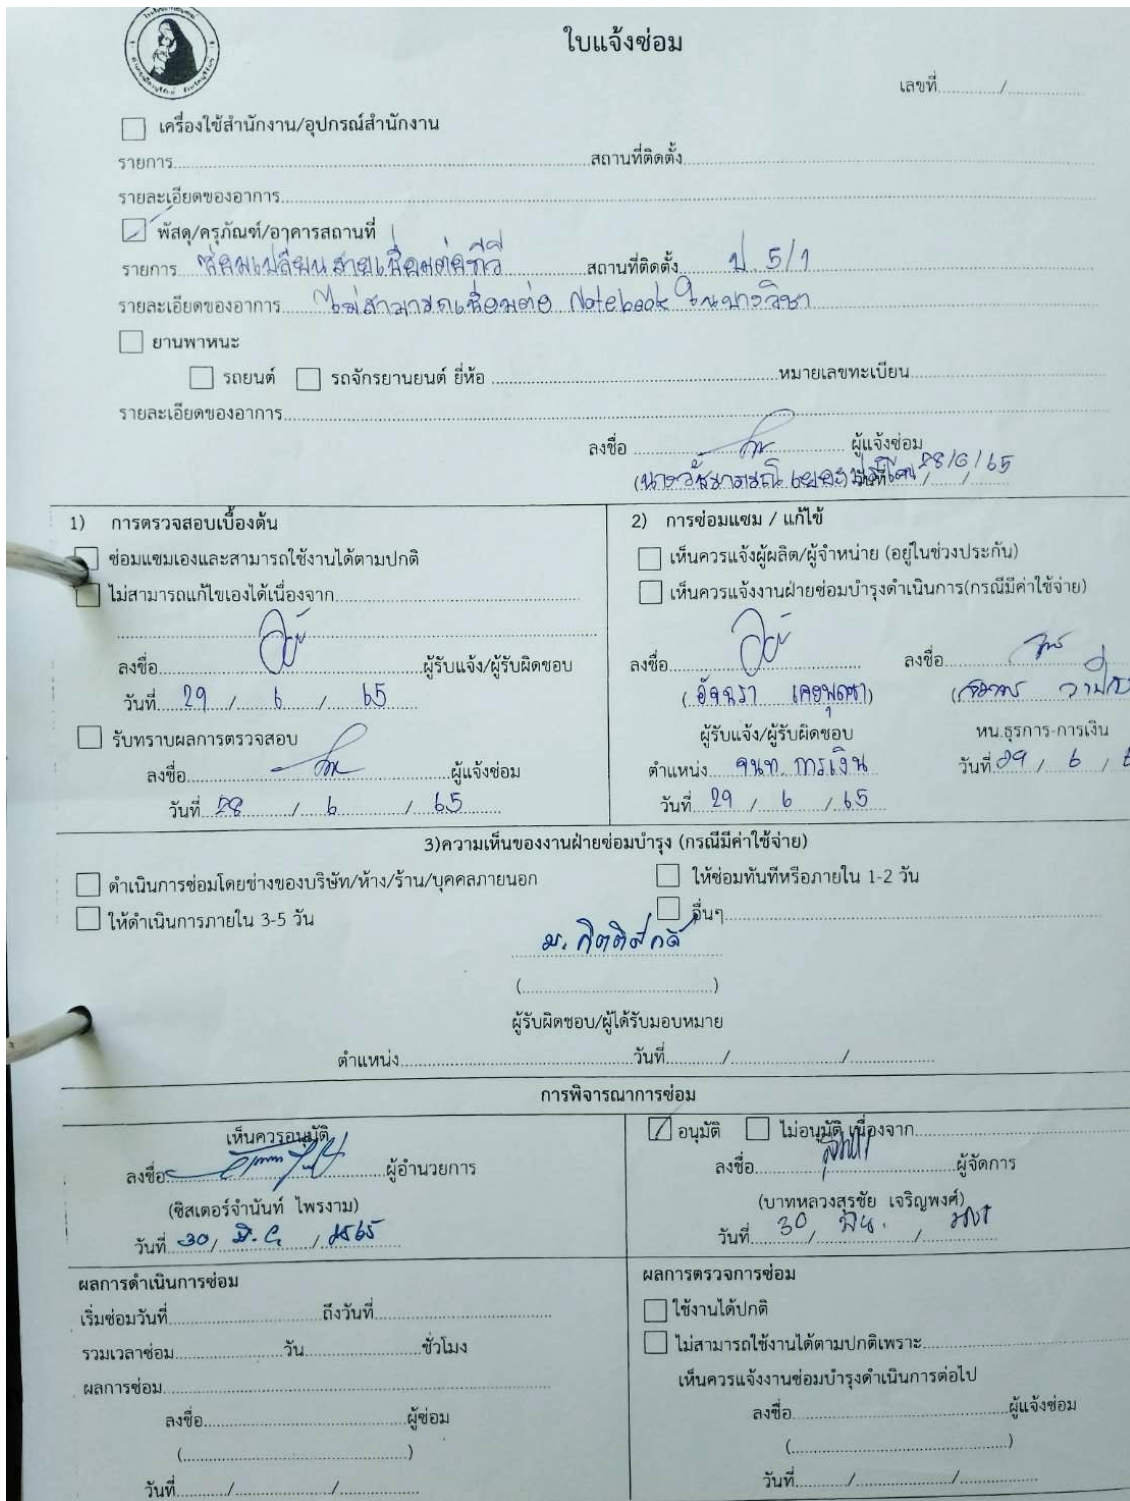 ใบแจ้งซ่อม
เลขที่............/...............
เครื่องใช้สำนักงาน/อุปกรณ์สำนักงาน
รายการ..........สถานที่ติดตั้ง..........
รายละเอียดของอาการ..........
พัสดุ/ครุภัณฑ์/อาคารสถานที่
รายการ ซ่อมเปลี่ยนสายเชื่อมต่อทีวี สถานที่ติดตั้ง ป. 5/1
รายละเอียดของอาการ ไม่สามารถเชื่อมต่อ Notebook ในบางวิชา
ยานพาหนะ
รถยนต์ รถจักรยานยนต์ ยี่ห้อ ..........หมายเลขทะเบียน..........
รายละเอียดของอาการ..........
ลงชื่อ .......... ผู้แจ้งซ่อม
28/6/65
1) การตรวจสอบเบื้องต้น
ซ่อมแซมเองและสามารถใช้งานได้ตามปกติ
ไม่สามารถแก้ไขเองได้เนื่องจาก..........
ลงชื่อ..........ผู้รับแจ้ง/ผู้รับผิดชอบ
วันที่ 29 / 6 / 65
รับทราบผลการตรวจสอบ
ลงชื่อ..........ผู้แจ้งซ่อม
วันที่ 28 / 6 / 65
2) การซ่อมแซม / แก้ไข้
เห็นควรแจ้งผู้ผลิต/ผู้จำหน่าย (อยู่ในช่วงประกัน)
เห็นควรแจ้งงานฝ่ายซ่อมบำรุงดำเนินการ(กรณีมีค่าใช้จ่าย)
ลงชื่อ.......... ลงชื่อ..........
(อัจฉรา)
ผู้รับแจ้ง/ผู้รับผิดชอบ หน.ธุรการ-การเงิน
ตำแหน่ง จนท. การเงิน วันที่ 29 / 6 /
วันที่ 29 / 6 / 65
3)ความเห็นของงานฝ่ายซ่อมบำรุง (กรณีมีค่าใช้จ่าย)
ดำเนินการซ่อมโดยช่างของบริษัท/ห้าง/ร้าน/บุคคลภายนอก ให้ซ่อมทันทีหรือภายใน 1-2 วัน
ให้ดำเนินการภายใน 3-5 วัน อื่นๆ..........
ม. กิตติศักดิ์
(..........)
ผู้รับผิดชอบ/ผู้ได้รับมอบหมาย
ตำแหน่ง..........วันที่........../........../..........
การพิจารณาการซ่อม
เห็นควรอนุมัติ
ลงชื่อ..........ผู้อำนวยการ
(ซิสเตอร์จำนันท์ ไพรงาม)
วันที่ 30 / มิ.ย. / 2565
อนุมัติ ไม่อนุมัติ เนื่องจาก..........
ลงชื่อ..........ผู้จัดการ
(บาทหลวงสุรชัย เจริญพงศ์)
วันที่ 30 / มิย. /
ผลการดำเนินการซ่อม
เริ่มซ่อมวันที่..........ถึงวันที่..........
รวมเวลาซ่อม..........วัน..........ชั่วโมง
ผลการซ่อม..........
ลงชื่อ..........ผู้ซ่อม
(..........)
วันที่........../........../..........
ผลการตรวจการซ่อม
ใช้งานได้ปกติ
ไม่สามารถใช้งานได้ตามปกติเพราะ..........
เห็นควรแจ้งงานซ่อมบำรุงดำเนินการต่อไป
ลงชื่อ..........ผู้แจ้งซ่อม
(..........)
วันที่........../........../..........